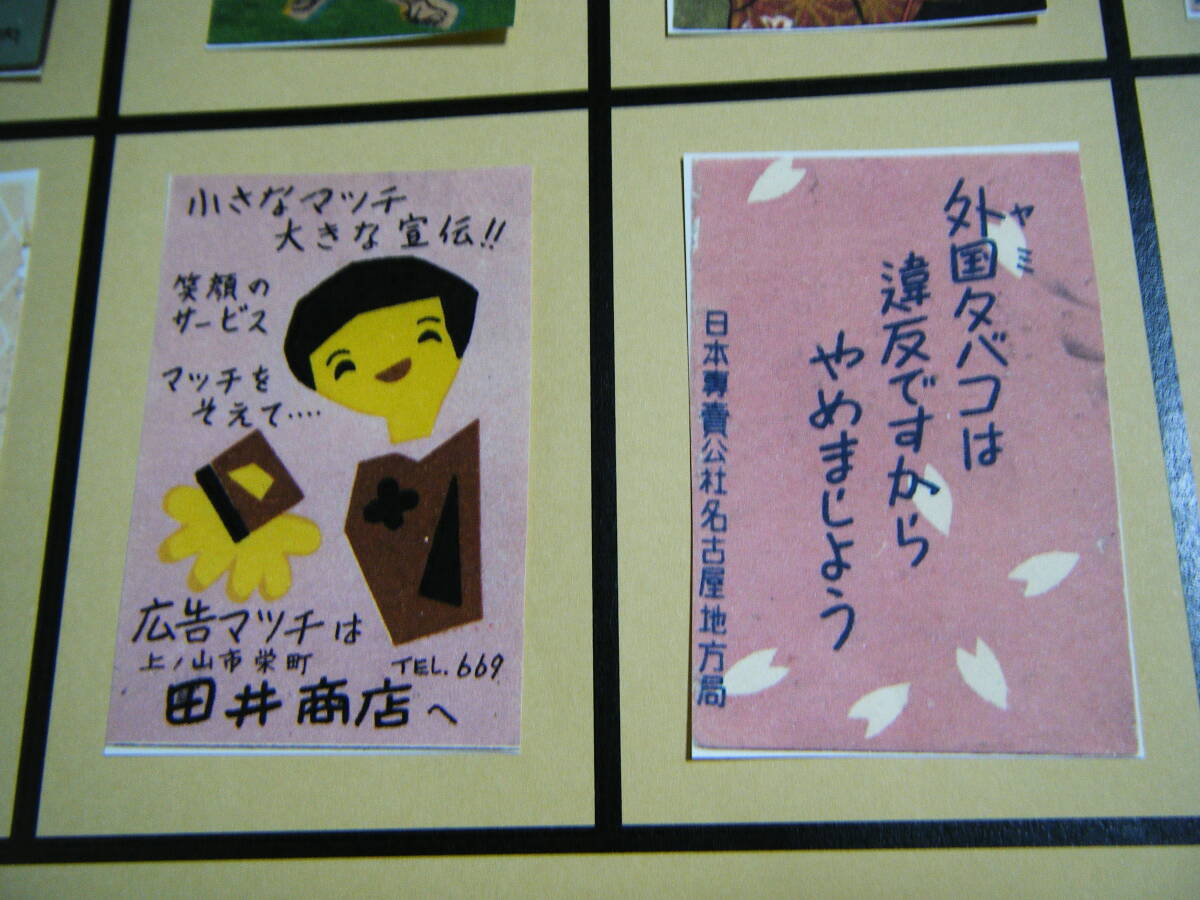 小さなマッチ
大きな宣伝!!
笑顔の
サービス
マッチを
そえて‥‥
広告マツチは
上ノ山市栄町 TEL.669
田井商店へ
ヤミ
外国タバコは
違反ですから
やめましよう
日本専賣公社名古屋地方局